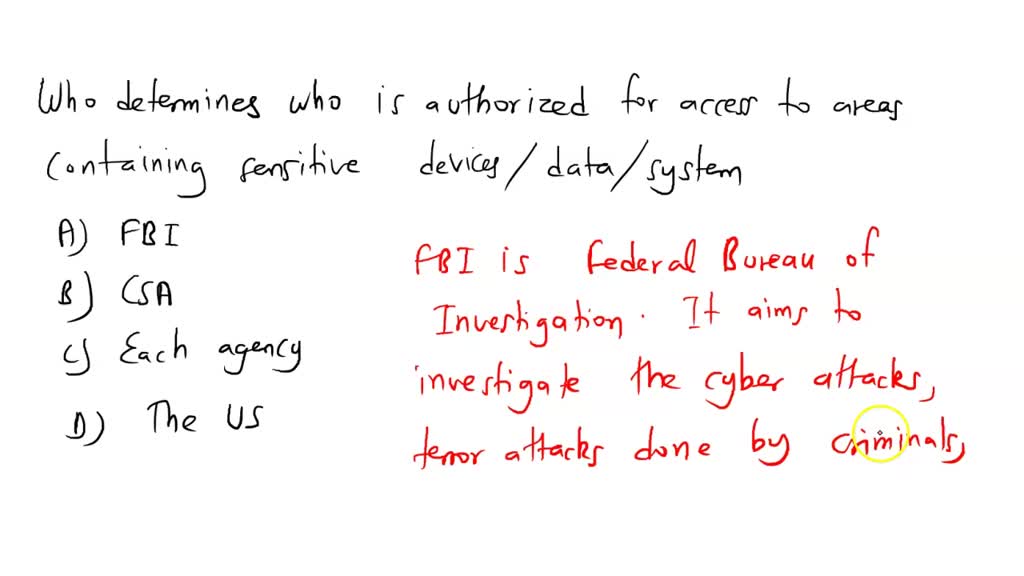 Who determines who is authorized for access to areas
containing sensitive devices/data/system
A) FBI
B) CSA
C) Each agency
D) The US
FBI is Federal Bureau of
Investigation. It aims to
investigate the cyber attacks,
terror attacks done by criminals,